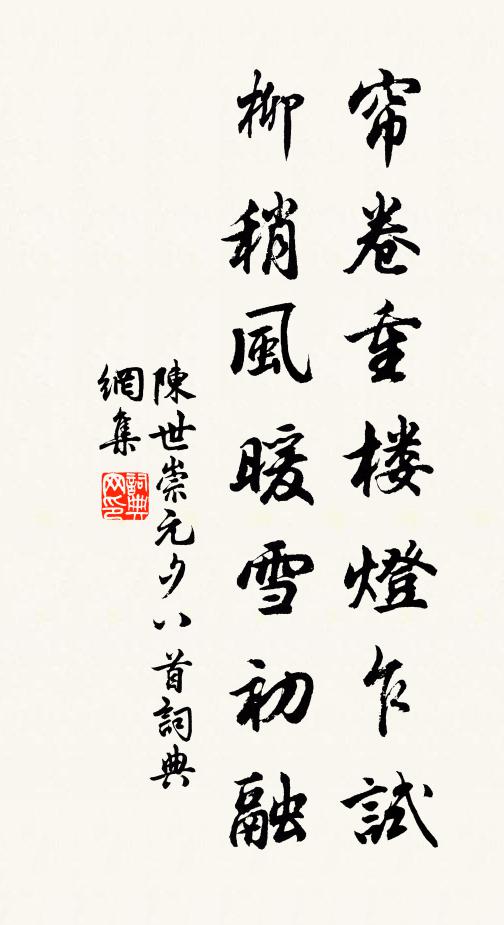 帘卷重楼燈乍試
柳稍風暖雪初融
陳世崇元夕八首詞典
網集
詞典
网印